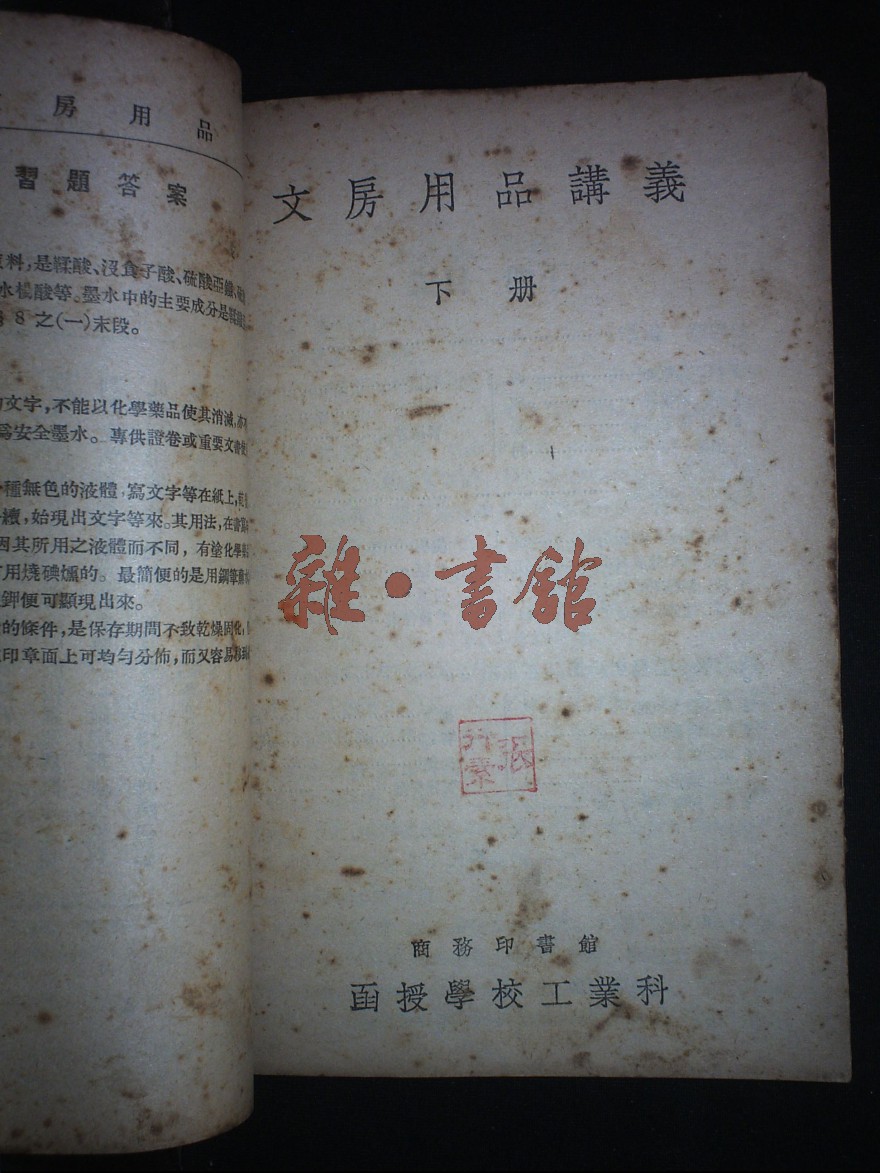 房用品
習題答案
料,是鞣酸、沒食子酸、硫酸亞鐵、
水楊酸等。墨水中的主要成分是鞣酸
8 之(一)末段。
文字,不能以化學藥品使其消滅,亦
爲安全墨水。專供證卷或重要文書使
種無色的液體,寫文字等在紙上,
續,始現出文字等來。其用法,在書寫
因其所用之液體而不同,有塗化學藥
用燒碘燻的。最簡便的是用鋼筆蘸
鉀便可顯現出來。
的條件,是保存期間不致乾燥固化,
印章面上可均勻分佈,而又容易
文房用品講義
下册
雜·書館
張
素
商務印書館
函授學校工業科